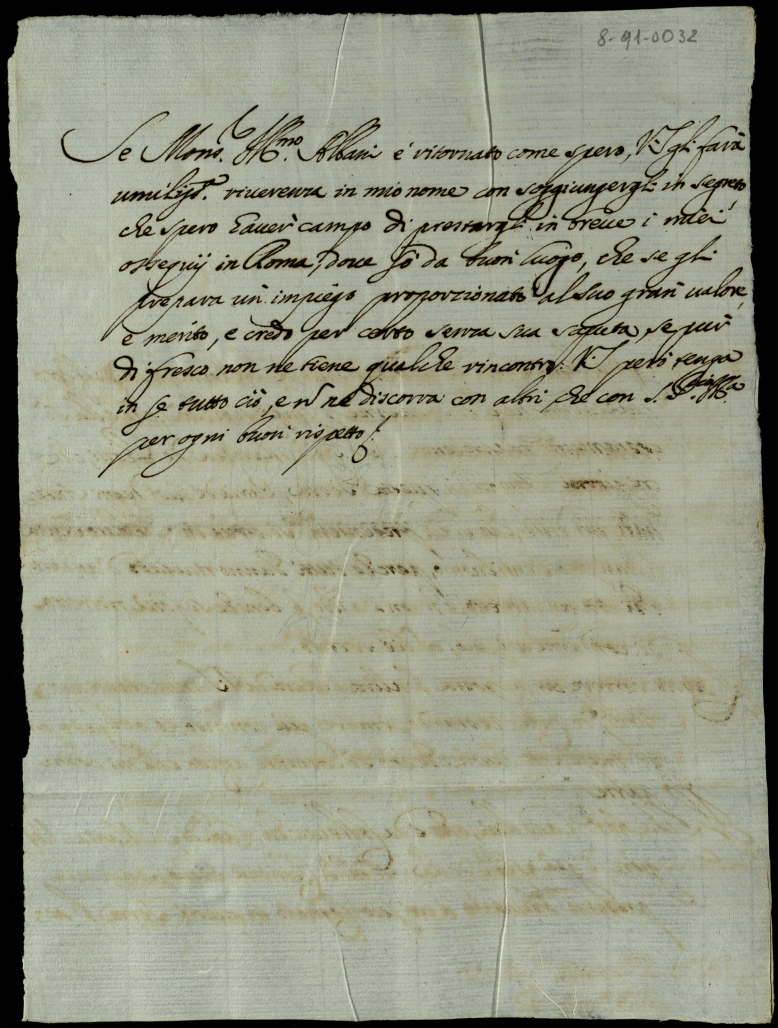 8-91-0032
Se Mons.r Ill.mo Albani è ritornato come spero, V.S. gli farà
umiliss.a riuerenza in mio nome con soggiungergli in segreto
che spero hauer campo di prestargli in breue i miei
ossequij in Roma, doue sò da buon luogo, che se gli
prepara un impiego proporzionato al suo gran ualore,
e merito, e credo per certo senza sua saputa, se pur
di fresco non ne tiene qualche rincontro. V.S. però tenga
in se tutto ciò, e nõ ne discorra con altri che con
per ogni buon rispetto